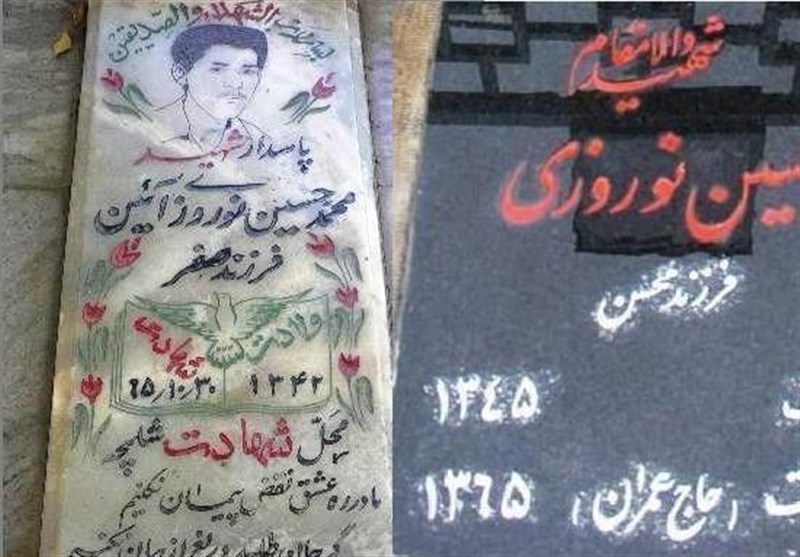 الشهداء والصدیقین
پاسدار شهید
محمدحسین نوروزی آئین
فرزند صفر
ولادت شهادت
۱۳۴۲ ۶۵/۱۰/۳۰
محل شهادت شلمچه
ما در ره عشق نقض پیمان نکنیم
گر جان طلبد دریغ از جان نکنیم
شهید والامقام
سین نوروزی
فرزند محسن
۱۳۴۵
۱۳۶۵ (حاج عمران)